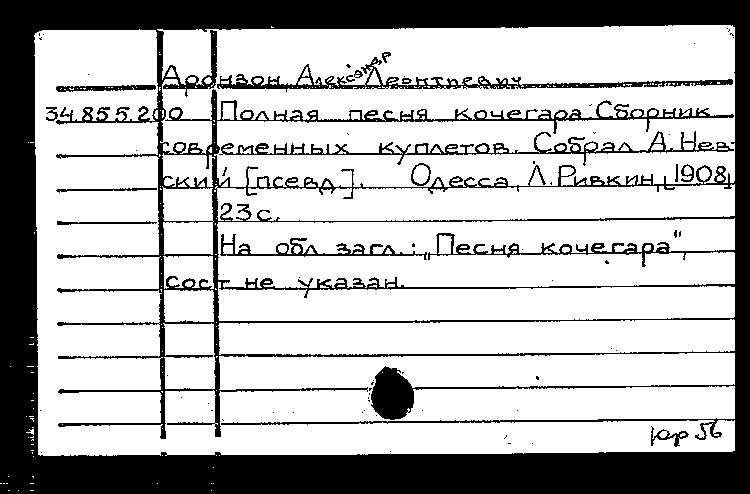 Аронзон, Александр Леонтьевич
34.855.200 Полная песня кочегара. Сборник
современных куплетов. Собрал А. Нев-
ский [псевд.]. Одесса, Л. Ривкин, [1908]
23 с.
На обл. загл.: „Песня кочегара",
сост не указан.
56